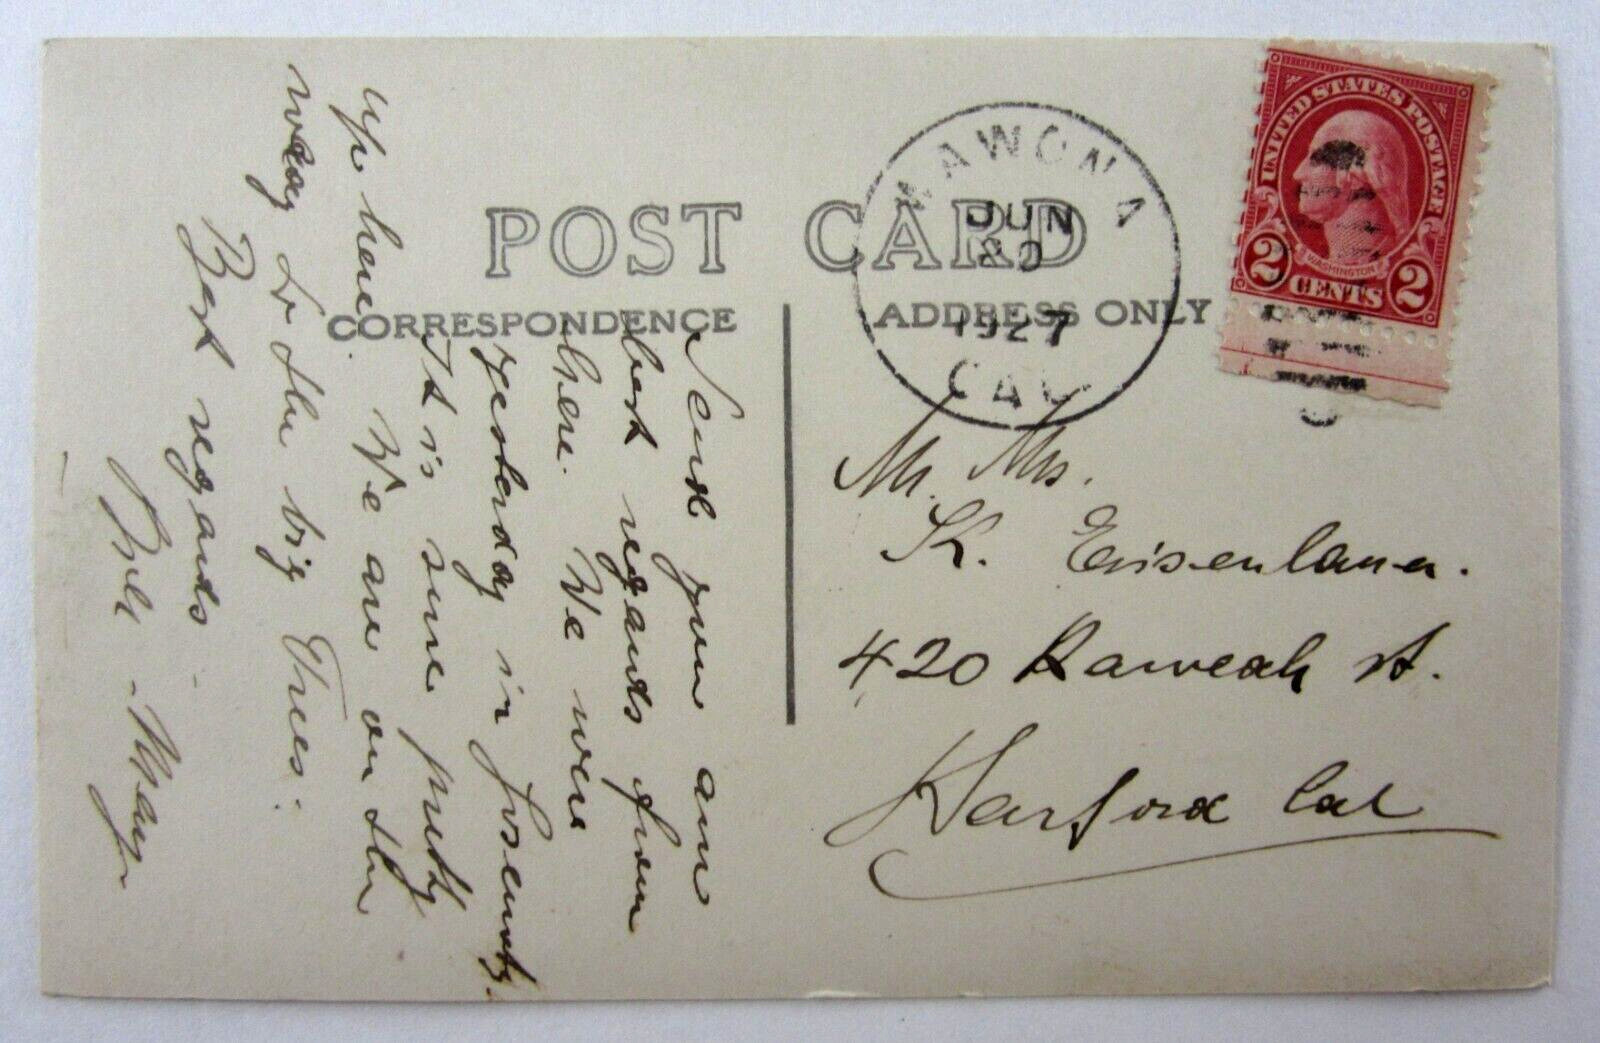 POST CARD
CORRESPONDENCE
ADDRESS ONLY
WAWONA
JUN
20
1927
CAL
UNITED STATES POSTAGE
WASHINGTON
2 CENTS 2
Mr. Mrs.
K.
420 Kaweah st.
Hanford Cal
Send you our
best regards from
here. We were
yesterday in Josemity.
It is sure pretty
up here. We are on the
way to the big Trees.
Best regards.